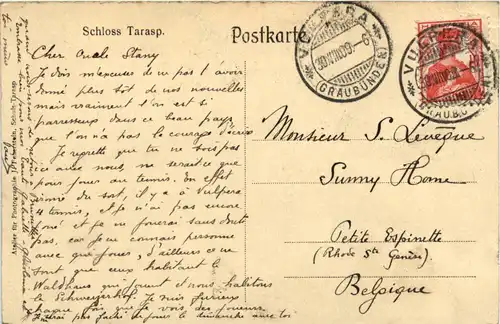 Schloss Tarasp.
Postkarte
VULPERA
30.VIII.09.-6
(GRAUBÜNDEN)
VULPERA
Cher Oncle Stany
Je dois m'excuser de ne pas t'avoir
donné plus tôt de nos nouvelles
mais vraiment l'on est si
paresseux dans ce beau pays
que l'on n'a pas le courage d'écrire
Je regrette que tu ne sois pas
ici avec nous, ne serait ce que
pour jouer au tennis. En effet
du sol, il y a à Vulpera
4 tennis, et je n'ai pas encore
joué et je ne jouerai sans doute
pas, car je ne connais personne
avec qui jouer, d'ailleurs ce ne
sont que ceux habitant le
Waldhaus qui jouent et nous habitons
le Schweizerhof. Je suis furieux
chaque fois que je vois des joueurs
pas fâché de jouer le dimanche avec toi
Monsieur S. Levêque
Sunny Home
Petite Espinette
(Rhode Ste Genèse)
Belgique